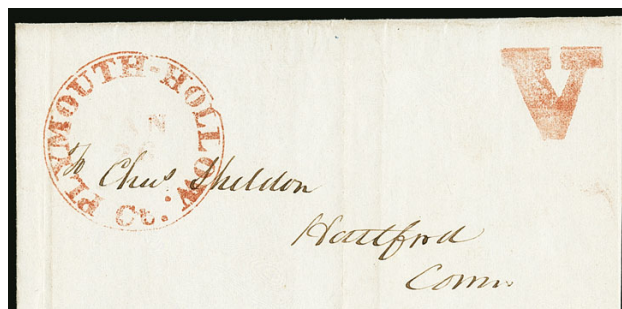 PLYMOUTH-HOLLOW
Ct.
V
To Chas Sheldon
Hartford
Conn.